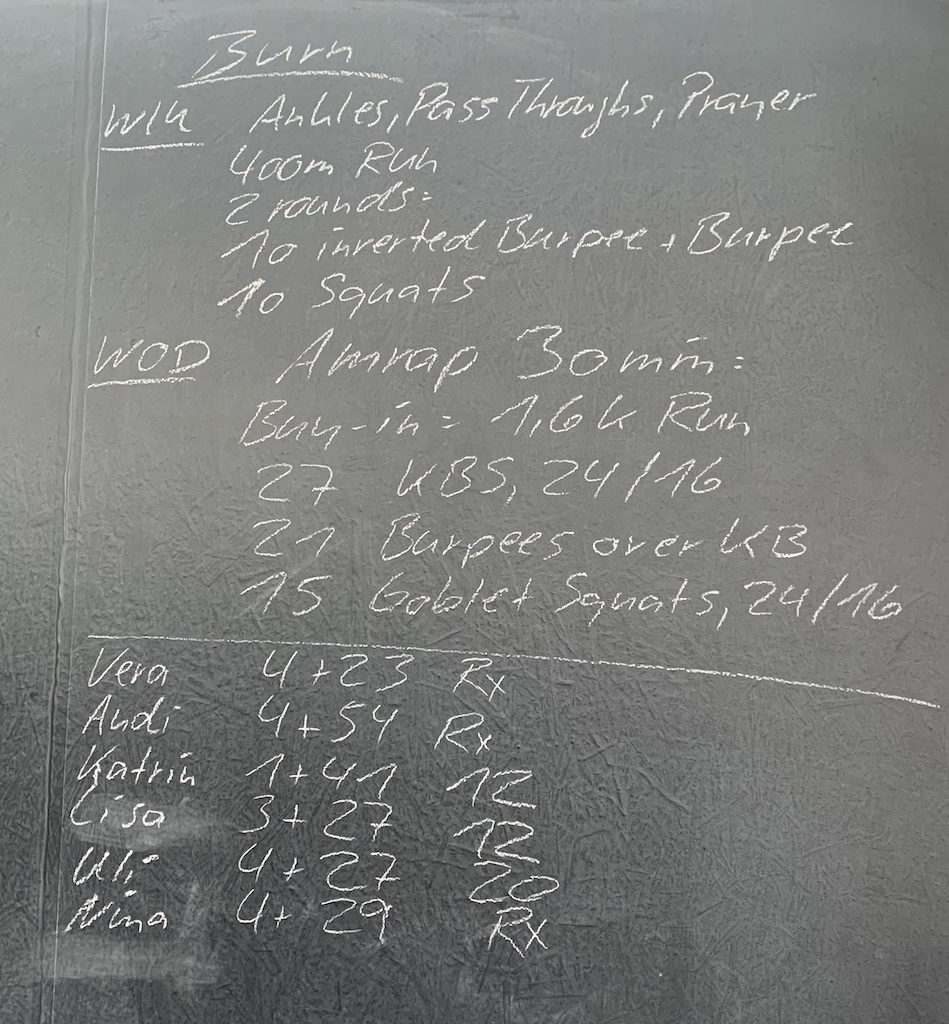 Burn
W/U Ankles, Pass Throughs, Prayer
400m Run
2 rounds:
10 inverted Burpee + Burpee
10 Squats
WOD Amrap 30min:
Buy-in: 1,6k Run
27 KBS, 24/16
21 Burpees over KB
15 Goblet Squats, 24/16
Vera 4+23 Rx
Andi 4+54 Rx
Katrin 1+41 12
Lisa 3+27 12
Uli 4+27 20
Nina 4+29 Rx